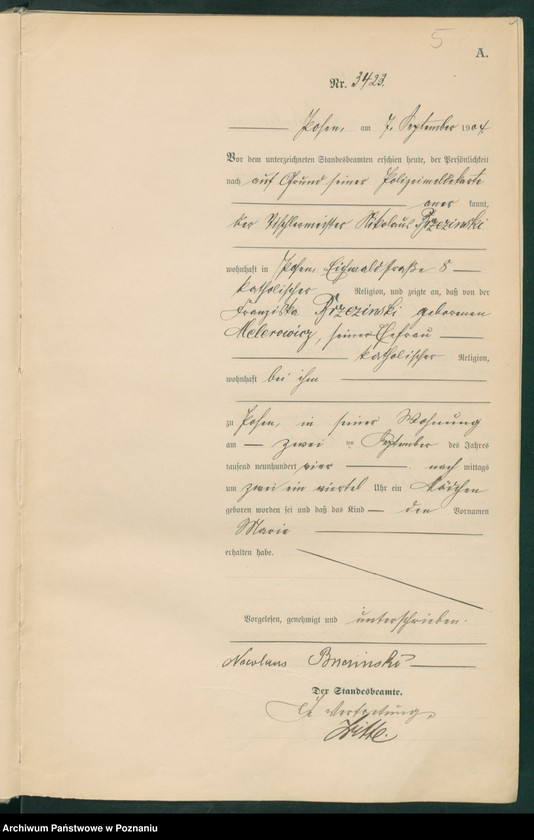 5
A.
Nr. 3423.
Posen, am 7. September 1904
Vor dem unterzeichneten Standesbeamten erschien heute, der Persönlichkeit
nach auf Grund seiner Polizeimeldekarte
aner kannt,
der Tischlermeister Nikolaus Brzezinski
wohnhaft in Posen, Eichwaldstraße 8
katholischer Religion, und zeigte an, daß von der
Franziska Brzezinski geborenen
Melerowicz, seiner Ehefrau
katholischer Religion,
wohnhaft bei ihm
zu Posen, in seiner Wohnung
am zwei ten September des Jahres
tausend neunhundert vier nach mittags
um zwei ein viertel Uhr ein Mädchen
geboren worden sei und daß das Kind den Vornamen
Marie
erhalten habe.
Vorgelesen, genehmigt und unterschrieben.
Der Standesbeamte.
In Vertretung
Archiwum Państwowe w Poznaniu